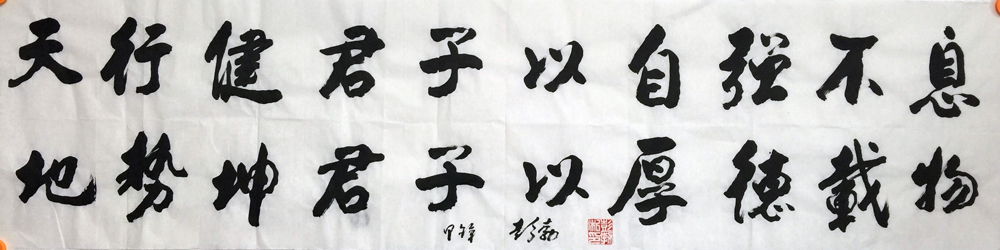 天行健君子以自強不息
地勢坤君子以厚德載物